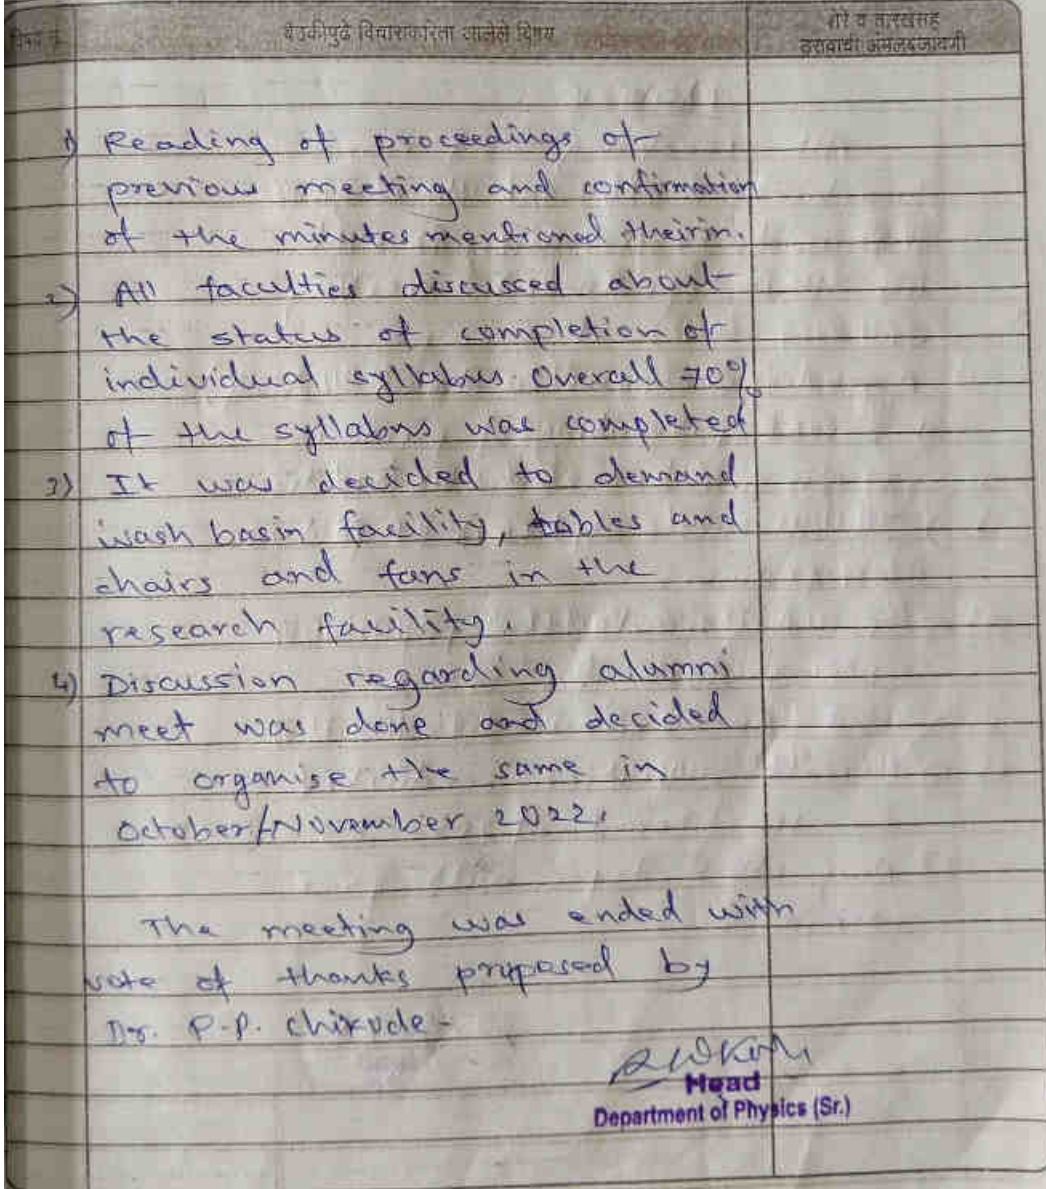 विषय क्र.
बैठकीपुढे विचाराकरिता आलेले विषय
शेरे व तारखेसह
ठरावाची अंमलबजावणी
1) Reading of proceedings of
previous meeting and confirmation
of the minutes mentioned theirin.
2) All faculties discussed about
the status of completion of
individual syllabus. Overall 70%
of the syllabus was completed
3) It was decided to demand
wash basin facility, tables and
chairs and fans in the
research facility.
4) Discussion regarding alumni
meet was done and decided
to organise the same in
October/November 2022.
The meeting was ended with
vote of thanks proposed by
Dr. P.P. Chikode-
Head
Department of Physics (Sr.)